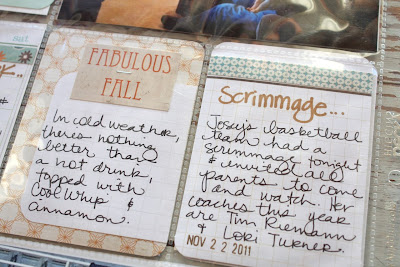 FABULOUS
FALL
In cold weather,
theres nothing
better than
a hot drink,
topped with
Cool Whip &
cinnamon.
Scrimmage...
Josey's basketball
team had a
scrimmage tonight
& invited all
parents to come
and watch. Her
coaches this year
are Tim Riemann
& Lori Turner.
NOV 22 2011